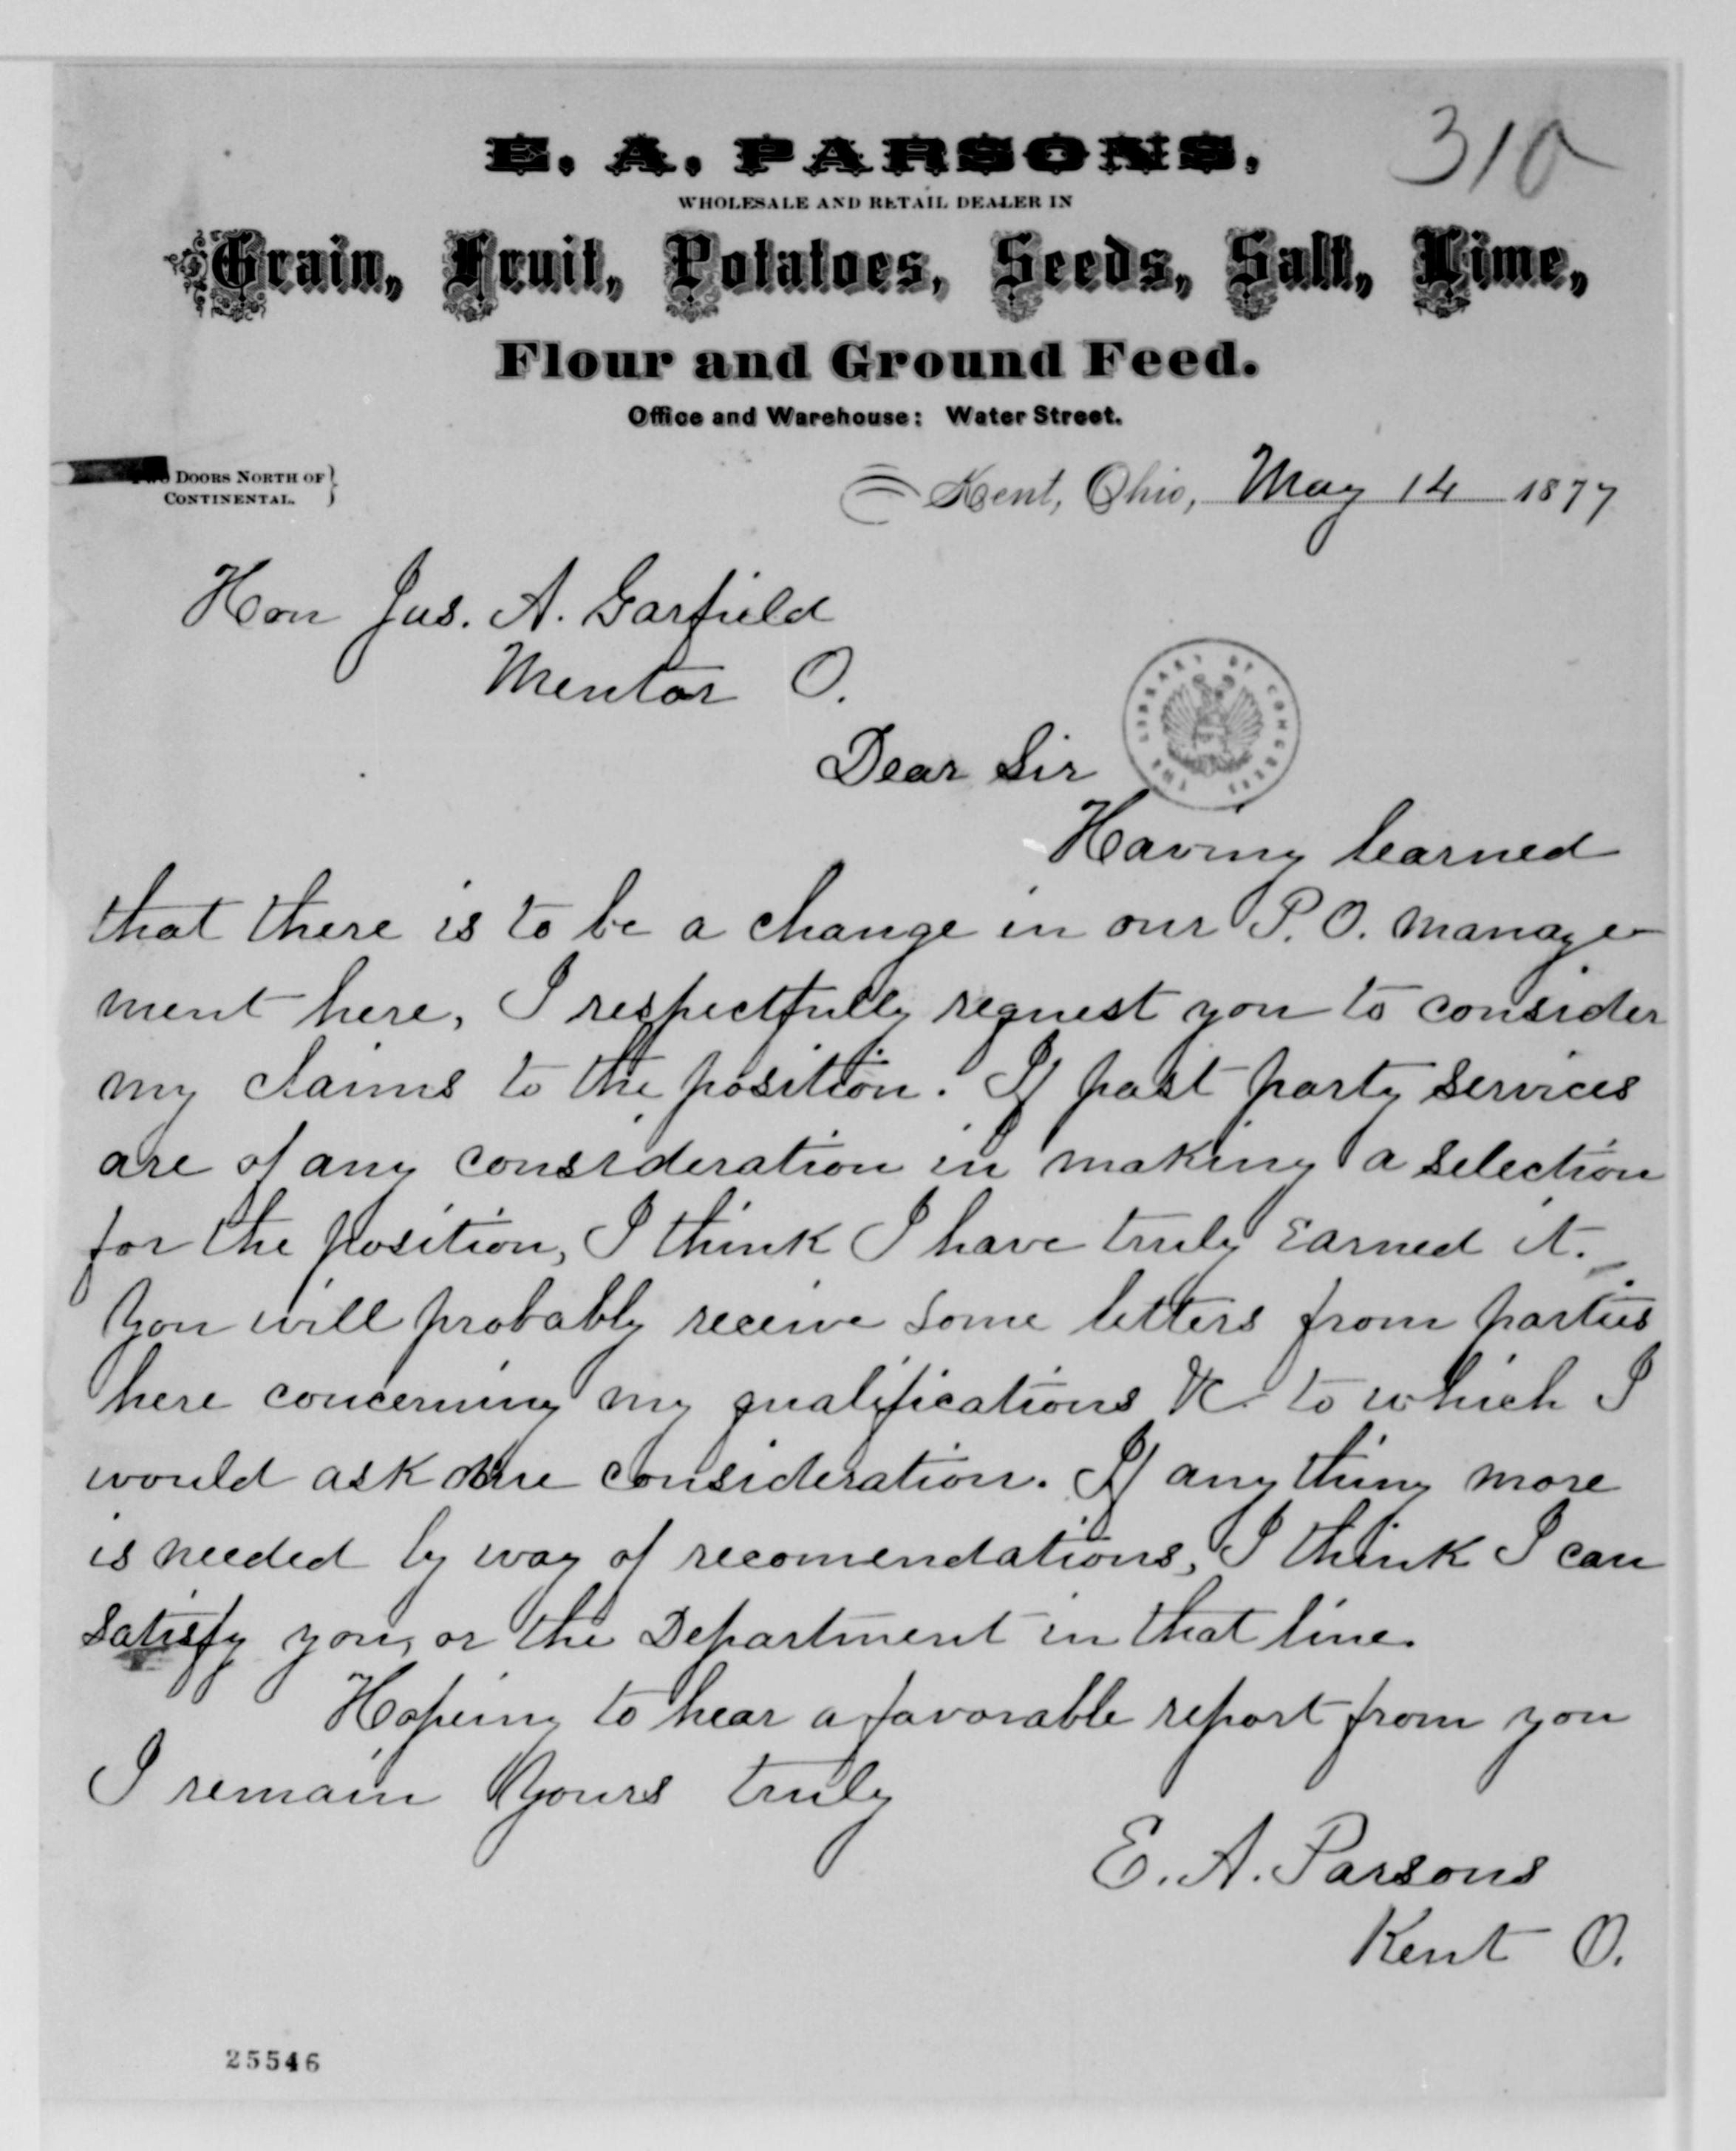 E. A. PARSONS.
310
WHOLESALE AND RETAIL DEALER IN
Grain, Fruit, Potatoes, Seeds, Salt, Lime,
Flour and Ground Feed.
Office and Warehouse: Water Street.
Two Doors North of
Continental.
Kent, Ohio, May 14 1877
Hon Jas. A. Garfield
Mentor O.
Dear Sir
THE LIBRARY OF CONGRESS
Having learned
that there is to be a change in our P. O. manage-
ment here, I respectfully request you to consider
my claims to the position. If past party services
are of any consideration in making a selection
for the position, I think I have truly earned it.
You will probably receive some letters from parties
here concerning my qualifications &c to which I
would ask due consideration. If any thing more
is needed by way of recomendations, I think I can
satisfy you, or the Department in that line.
Hopeing to hear a favorable report from you
I remain Yours truly
E. A. Parsons
Kent O.
25546